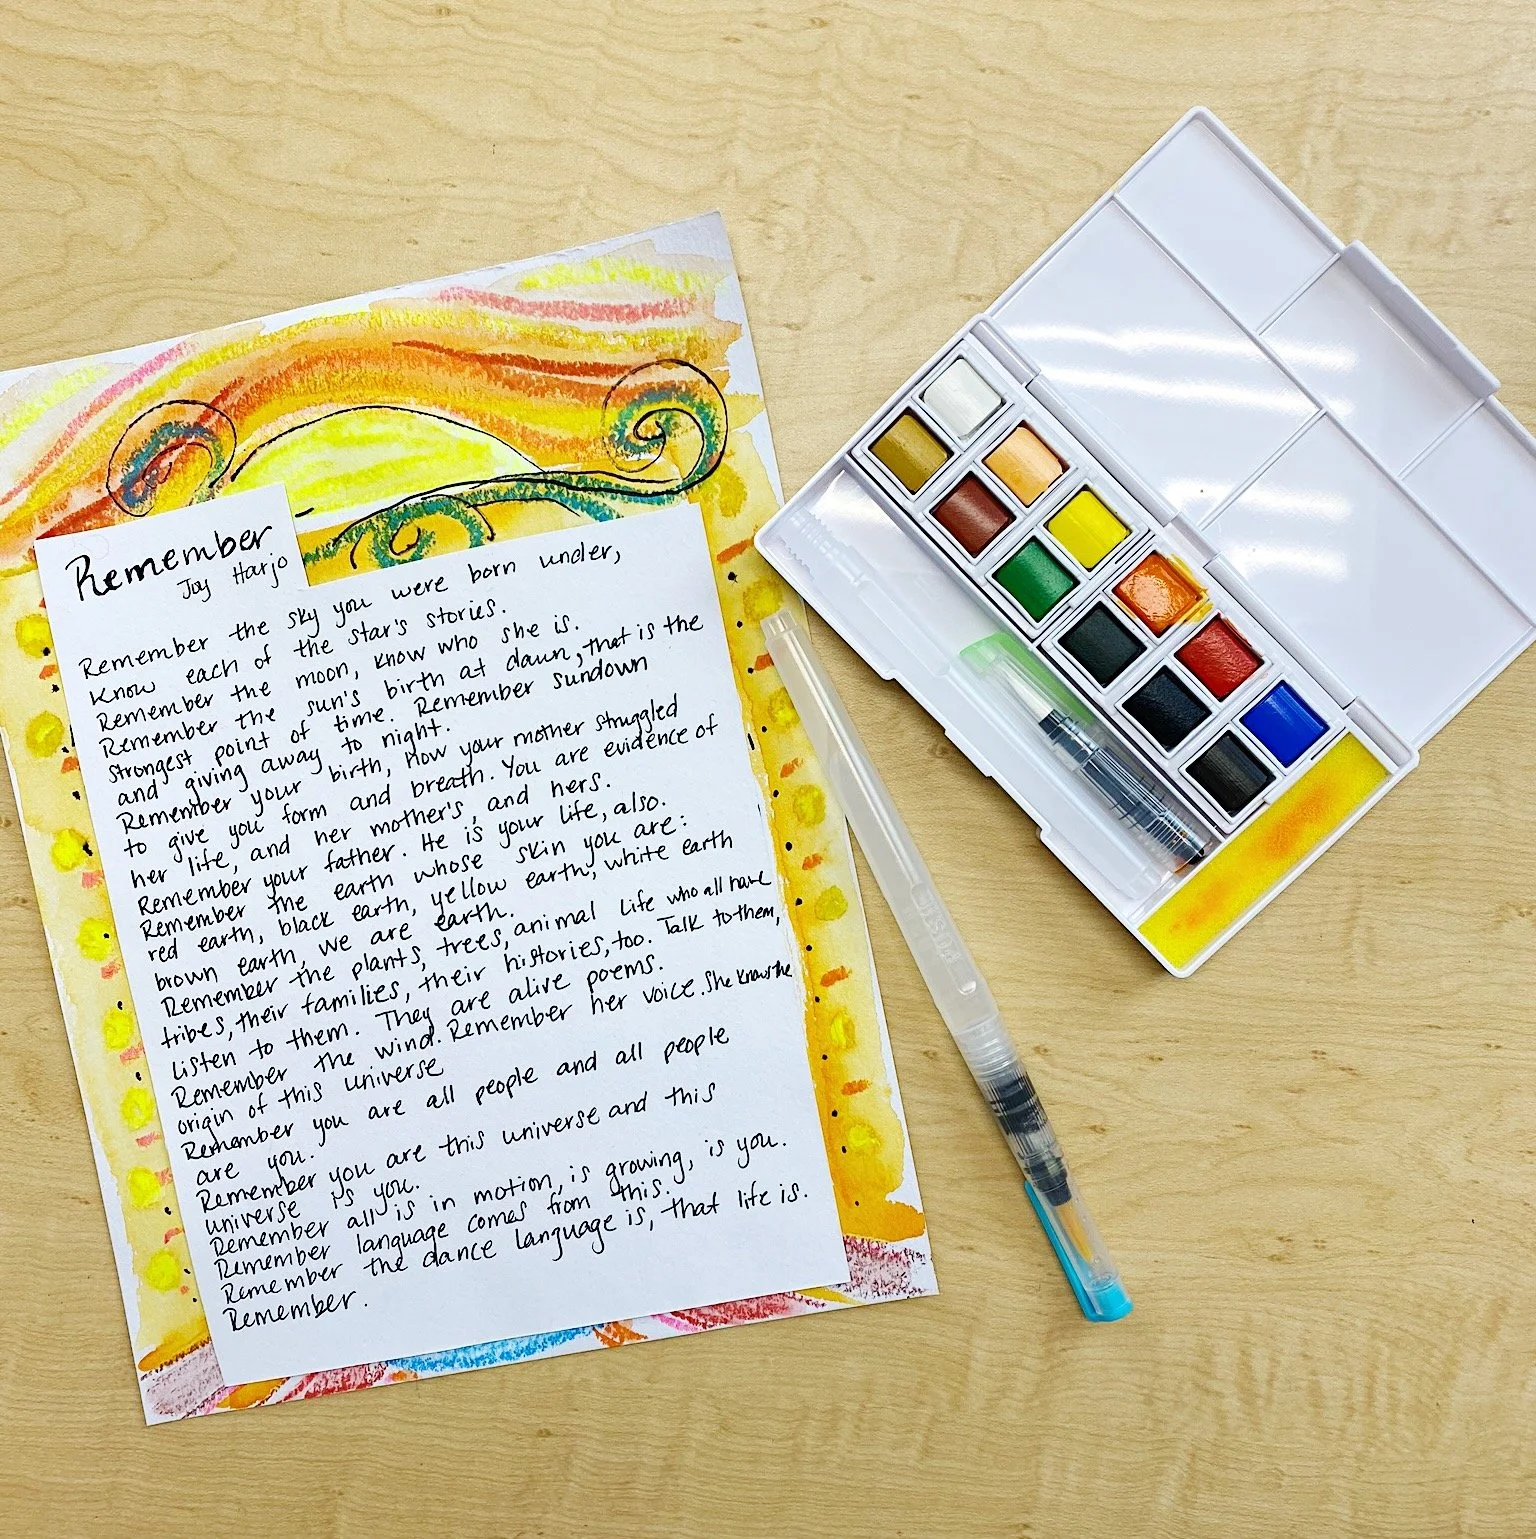 Remember
Joy Harjo
Remember the sky you were born under,
Know each of the star's stories.
Remember the moon, know who she is.
Remember the sun's birth at dawn, that is the
strongest point of time. Remember sundown
and giving away to night.
Remember your birth, How your mother struggled
to give you form and breath. You are evidence of
her life, and her mother's, and hers.
Remember your father. He is your life, also.
Remember the earth whose skin you are:
red earth, black earth, yellow earth, white earth
brown earth, we are earth.
Remember the plants, trees, animal life who all have
tribes, their families, their histories, too. Talk to them,
listen to them. They are alive poems.
Remember the wind. Remember her voice. She knows the
origin of this universe
Remember you are all people and all people
are you.
Remember you are this universe and this
universe is you.
Remember all is in motion, is growing, is you.
Remember language comes from this.
Remember the dance language is, that life is.
Remember.